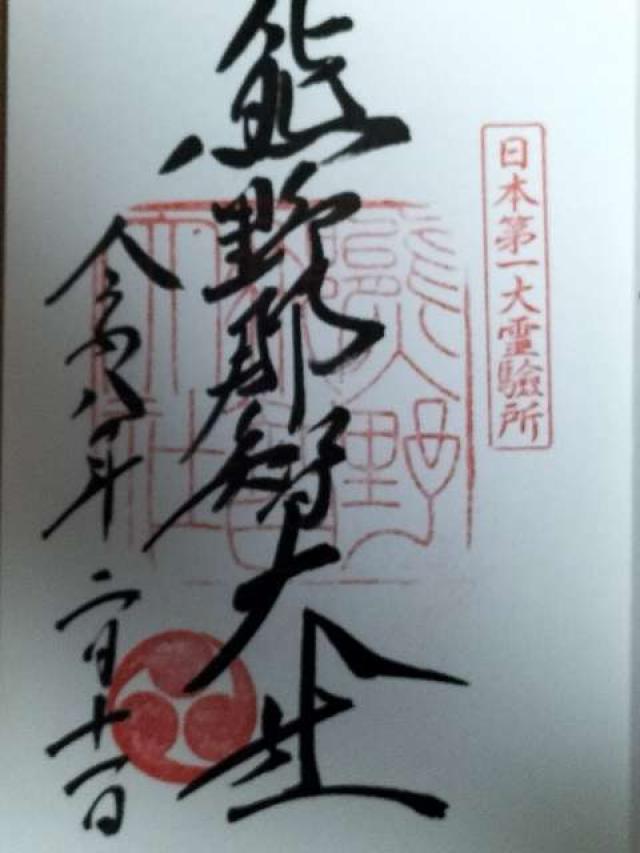 日本第一大霊驗所
熊野那智大社
熊野那智大社
令和八年二月十一日